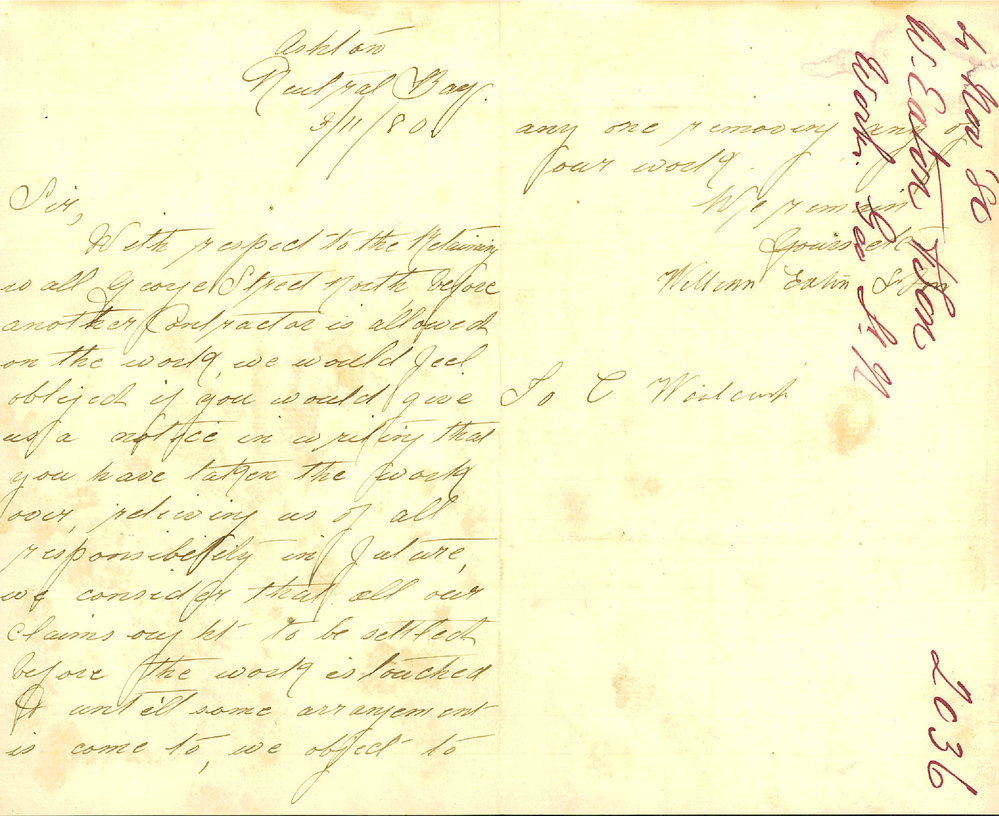 Ashton
Neutral Bay
3/11/80
Sir,
With respect to the Retaining
wall George Street North, before
another Contractor is allowed
on the work, we would feel
obliged if you would give
us a notice in writing that
you have taken the work
over, relieving us of all
responsibility in future,
we consider that all our
claims ought to be settled
before the work is touched
& untill some arrangement
is come to, we object to
any one removing any of
our work.
We remain
Yours &c
William Eaton & Son
To C
4 Nov 80
W. Eaton & Son
Work. Geo St. N
2036